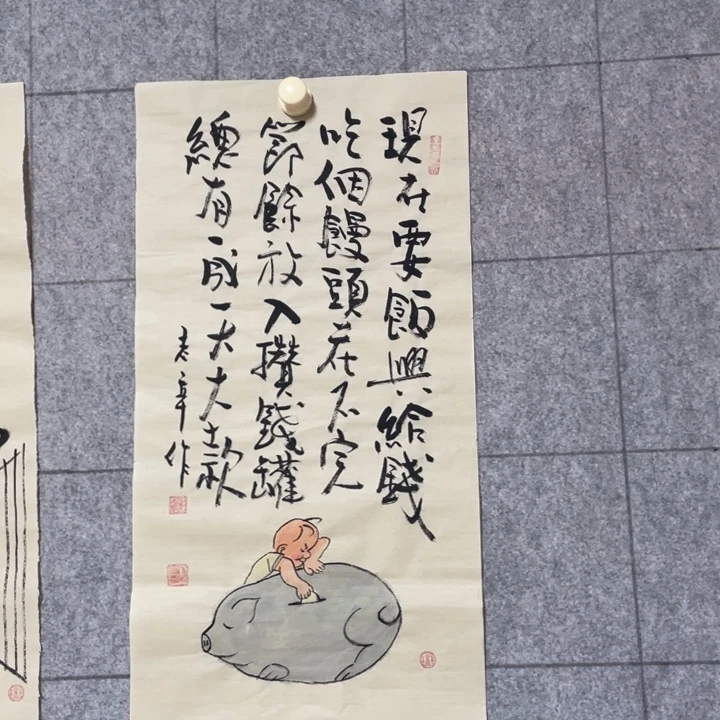 現在要飯興給錢
吃個饅頭花不完
節餘放入攢錢罐
總有一成天大款
老辛作